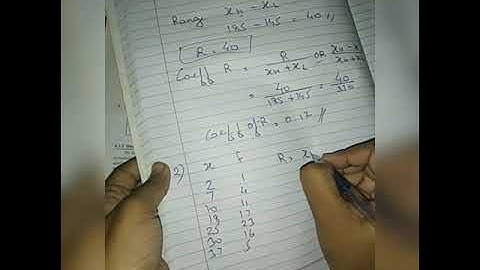 Rang xH - xL
185 - 145 = 40 //
R = 40
Coeff R = R / xH + xL OR xH - x / xH + xL
= 40 / 185 + 145 = 40 / 330
Coeff of R = 0.12 //
2) x f R = x
2 1
7 4
10 11
18 17
25 23
30 16
37 5